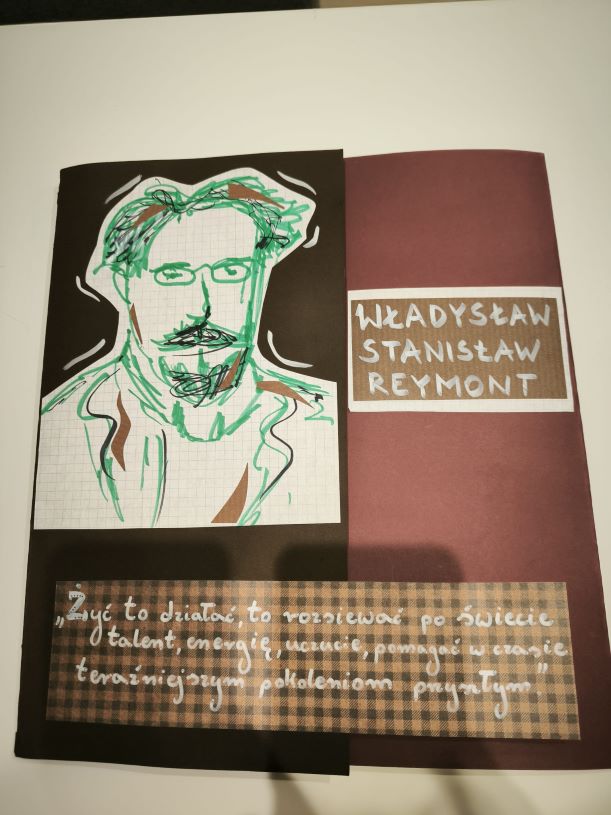 WŁADYSŁAW
STANISŁAW
REYMONT
„Żyć to działać, to rozsiewać po świecie
talent, energię, uczucie, pomagać w czasie
teraźniejszym pokoleniom przyszłym."